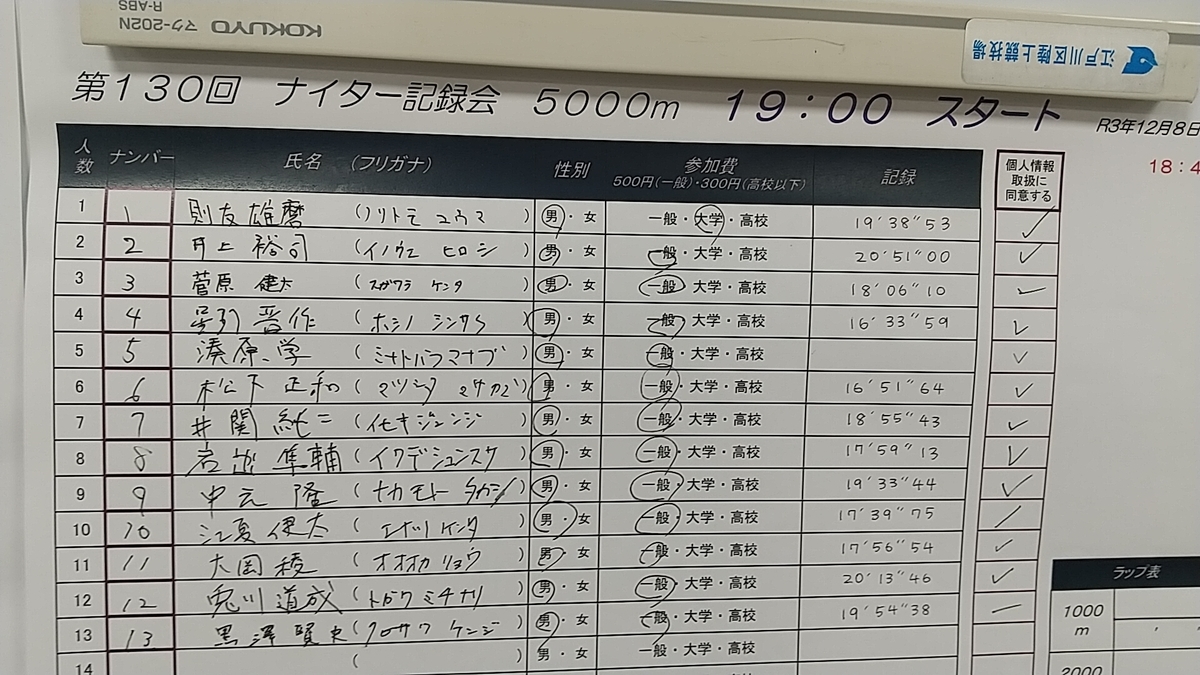 KOKUYO マク-202N
R-ABS
江戸川区陸上競技場
第130回 ナイター記録会 5000m 19:00 スタート
R3年12月8日
18:4
人数 ナンバー 氏名 (フリガナ) 性別 参加費 500円(一般)・300円(高校以下) 記録 個人情報取扱に同意する
1 1 則友雄磨 (ノリトモ ユウマ) 男・女 一般・大学・高校 19'38"53 ✓
2 2 井上裕司 (イノウエ ヒロシ) 男・女 一般・大学・高校 20'51"00 ✓
3 3 菅原健太 (スガワラ ケンタ) 男・女 一般・大学・高校 18'06"10 ✓
4 4 晋作 (ホシノ シンサク) 男・女 一般・大学・高校 16'33"59 ✓
5 5 湊原学 (ミナトバラマナブ) 男・女 一般・大学・高校 ✓
6 6 松下正和 (マツシタ マサカズ) 男・女 一般・大学・高校 16'51"64 ✓
7 7 井関純二 (イセキジュンジ) 男・女 一般・大学・高校 18'55"43 ✓
8 8 岩出隼輔 (イワデシュンスケ) 男・女 一般・大学・高校 17'59"13 ✓
9 9 中元隆 (ナカモト タカシ) 男・女 一般・大学・高校 19'33"44 ✓
10 10 江夏健太 (エナツ ケンタ) 男・女 一般・大学・高校 17'39"75
11 11 大岡稜 (オオオカ リョウ) 男・女 一般・大学・高校 17'56"54 ✓
12 12 兎川道成 (トガワ ミチナリ) 男・女 一般・大学・高校 20'13"46 ✓
13 13 黒澤賢史 (クロサワ ケンジ) 男・女 一般・大学・高校 19'54"38
14 ( ) 男・女 一般・大学・高校
ラップ表
1000m ' "
2000